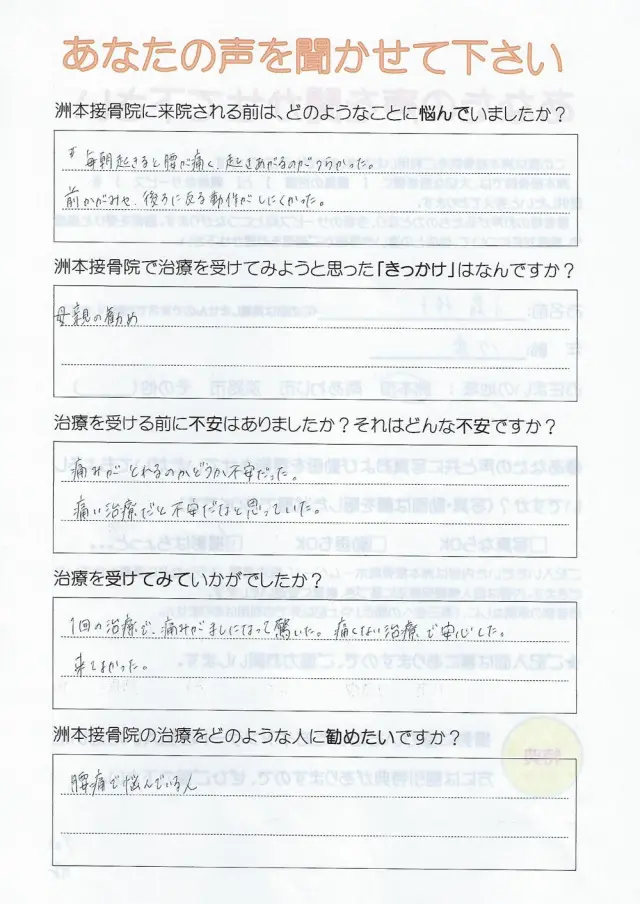 あなたの声を聞かせて下さい
洲本接骨院に来院される前は、どのようなことに悩んでいましたか？
毎朝起きると腰が痛く、起きあがるのがつらかった。
前かがみや、後ろに反る動作がしにくかった。
洲本接骨院で治療を受けてみようと思った「きっかけ」はなんですか？
母親の勧め
治療を受ける前に不安はありましたか？それはどんな不安ですか？
痛みがとれるのかどうか不安だった。
痛い治療だと不安だなと思っていた。
治療を受けてみていかがでしたか？
1回の治療で、痛みがましになって驚いた。痛くない治療で安心した。
来てよかった。
洲本接骨院の治療をどのような人に勧めたいですか？
腰痛で悩んでいる人